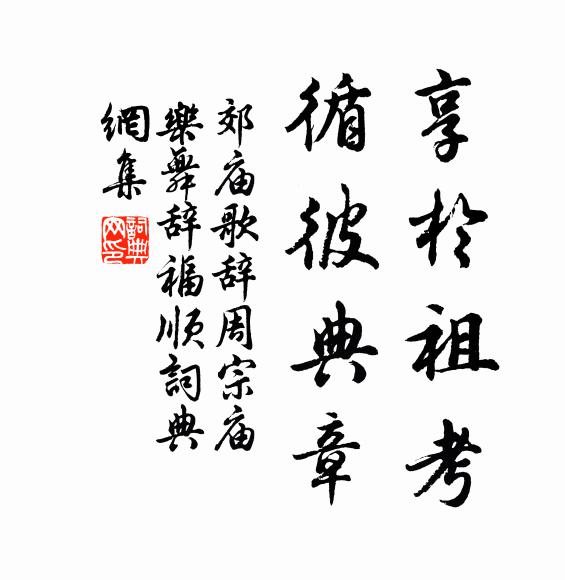 享於祖考
循彼典章
郊庙歌辞周宗庙
樂舞辞福順詞典
網集
詞典
网印